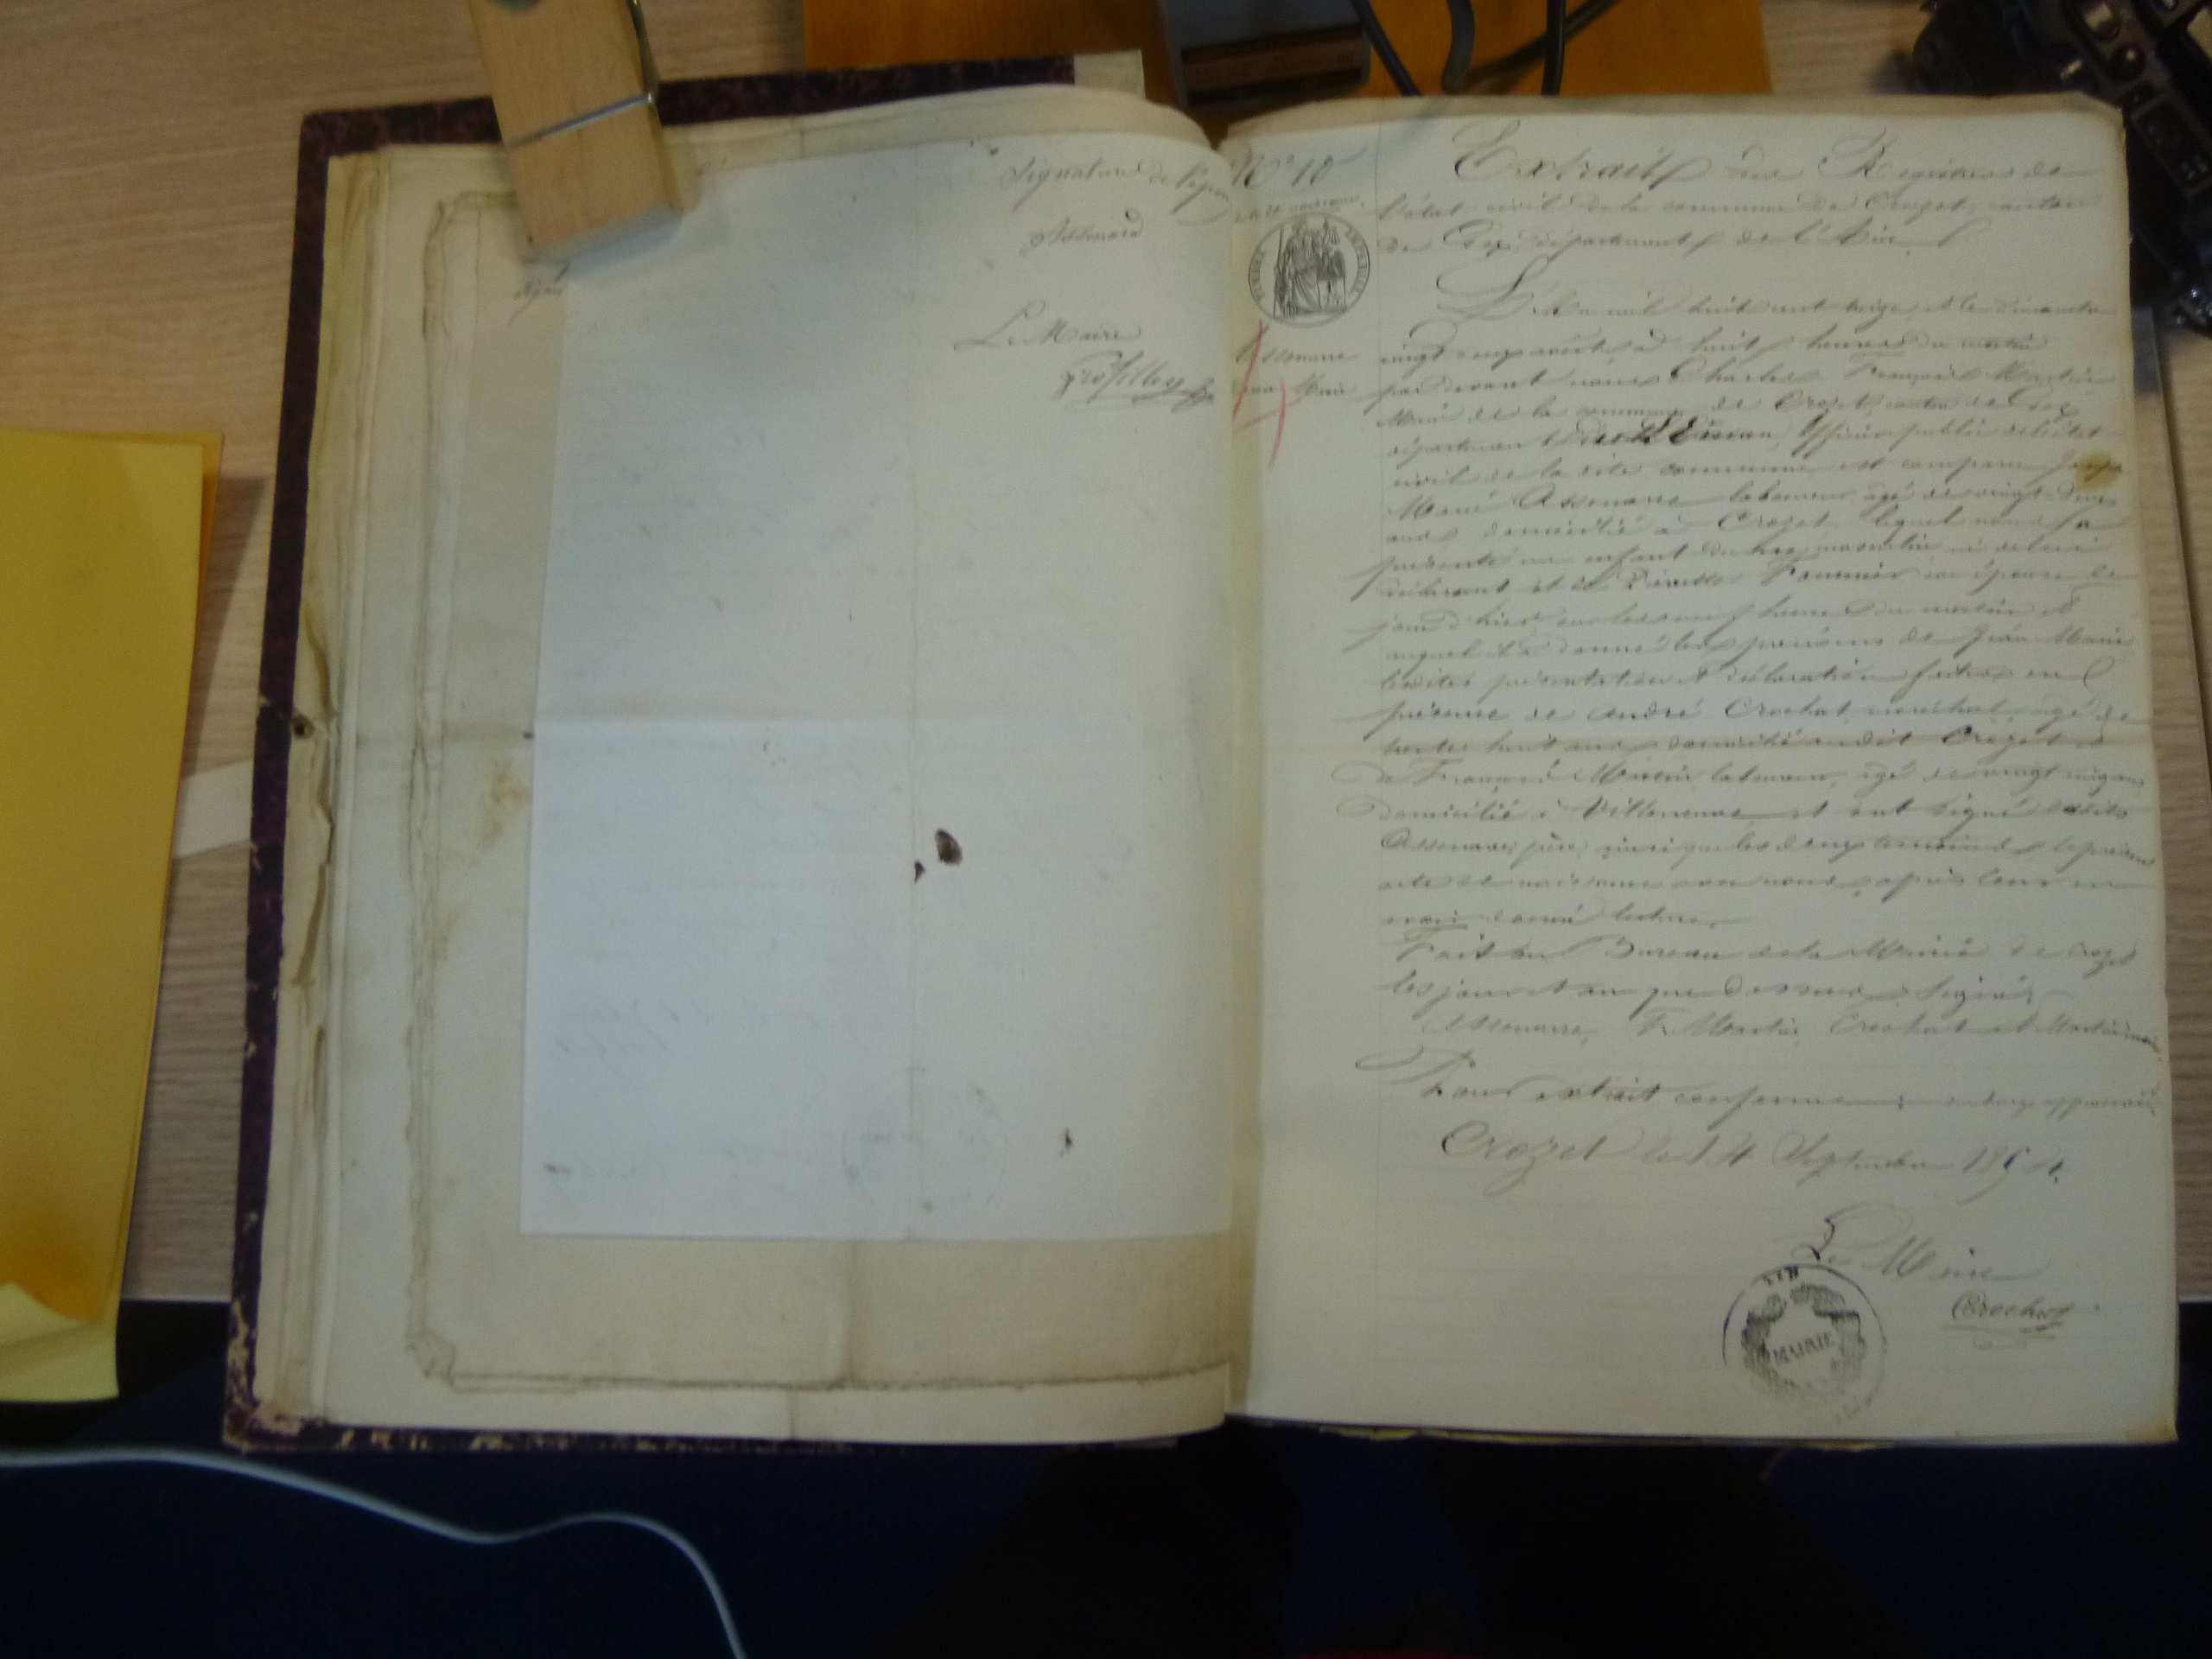 Signature de l'époux
Assenare
Le Maire
Grosfilley
N° 18
TIMBRE IMPERIAL
Assenare
Jean Marie
Extrait des Registres de
l'état civil de la commune de Crozet, canton
de Gex, département de l'Ain.
L'An mil huit cent treize et le dimanche
vingt deux août à huit heures du matin
par devant nous Charles François Martin
Maire de la commune de Crozet, canton de Gex
département du Léman, Officier public de l'état
civil de la dite commune est comparu
Marie Assenare laboureur âgé de vingt deux
ans domicilié à Crozet lequel nous a
présenté un enfant du sexe masculin né de lui
déclarant et de Pierrette Fournier son épouse le
jour d'hier sur les neuf heures du matin et
auquel il a donné les prénoms de Jean Marie
lesdites présentation et déclaration faites en
présence de André Crochat maréchal âgé de
trente huit ans domicilié audit Crozet et
de François Martin laboureur, âgé de vingt cinq ans
domicilié à Villeneuve et ont signé lesdits
Assenare père, ainsi que les deux témoins le présent
acte de naissance avec nous, après leur en
avoir donné lecture.
Fait au Bureau de la Mairie de Crozet
les jour et an que dessus signés
Assenare, F. Martin, Crochat et Martin maire
Pour extrait conforme
Crozet le 14 Septembre 1854.
Le Maire
Crochat
MAIRIE